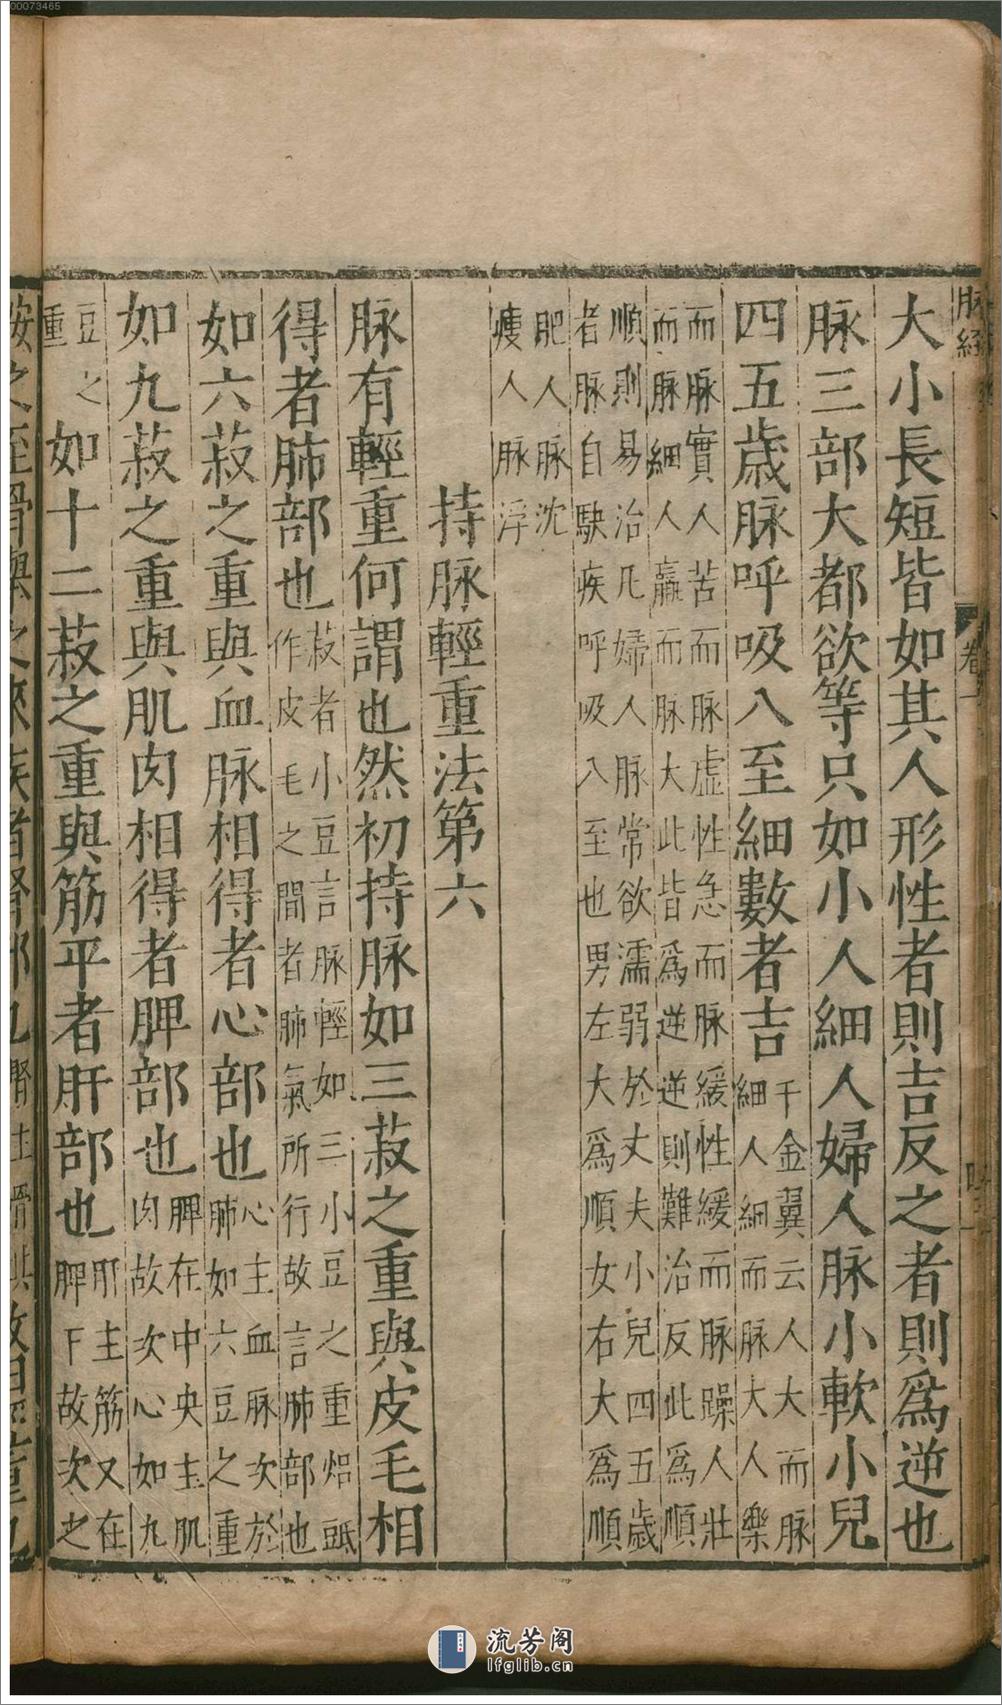 00073465
脉經
卷一
大小長短皆如其人形性者則吉反之者則爲逆也
脉三部大都欲等只如小人細人婦人脉小軟小兒
四五歳脉呼吸八至細數者吉千金翼云人大而脉細人細而脉大人樂
而脉實人苦而脉虛性急而脉緩性緩而脉躁人壯而脉細人羸而脉大此皆爲逆逆則難治反此爲順
順則易治凢婦人脉常欲濡弱於丈夫小兒四五歳者脉自駃疾呼吸八至也男左大爲順女右大爲順
肥人脉沈瘦人脉浮
持脉輕重法第六
脉有輕重何謂也然初持脉如三菽之重與皮毛相
得者肺部也菽者小豆言脉輕如三小豆之重作皮毛之間者肺氣所行故言肺部也
如六菽之重與血脉相得者心部也心主血脉次於肺如六豆之重
如九菽之重與肌肉相得者脾部也脾在中央主肌肉故次心如九
豆之重如十二菽之重與筋平者肝部也肝主筋又在脾下故次之
按之至骨舉之來疾者腎部也
流芳阁
lfglib.cn